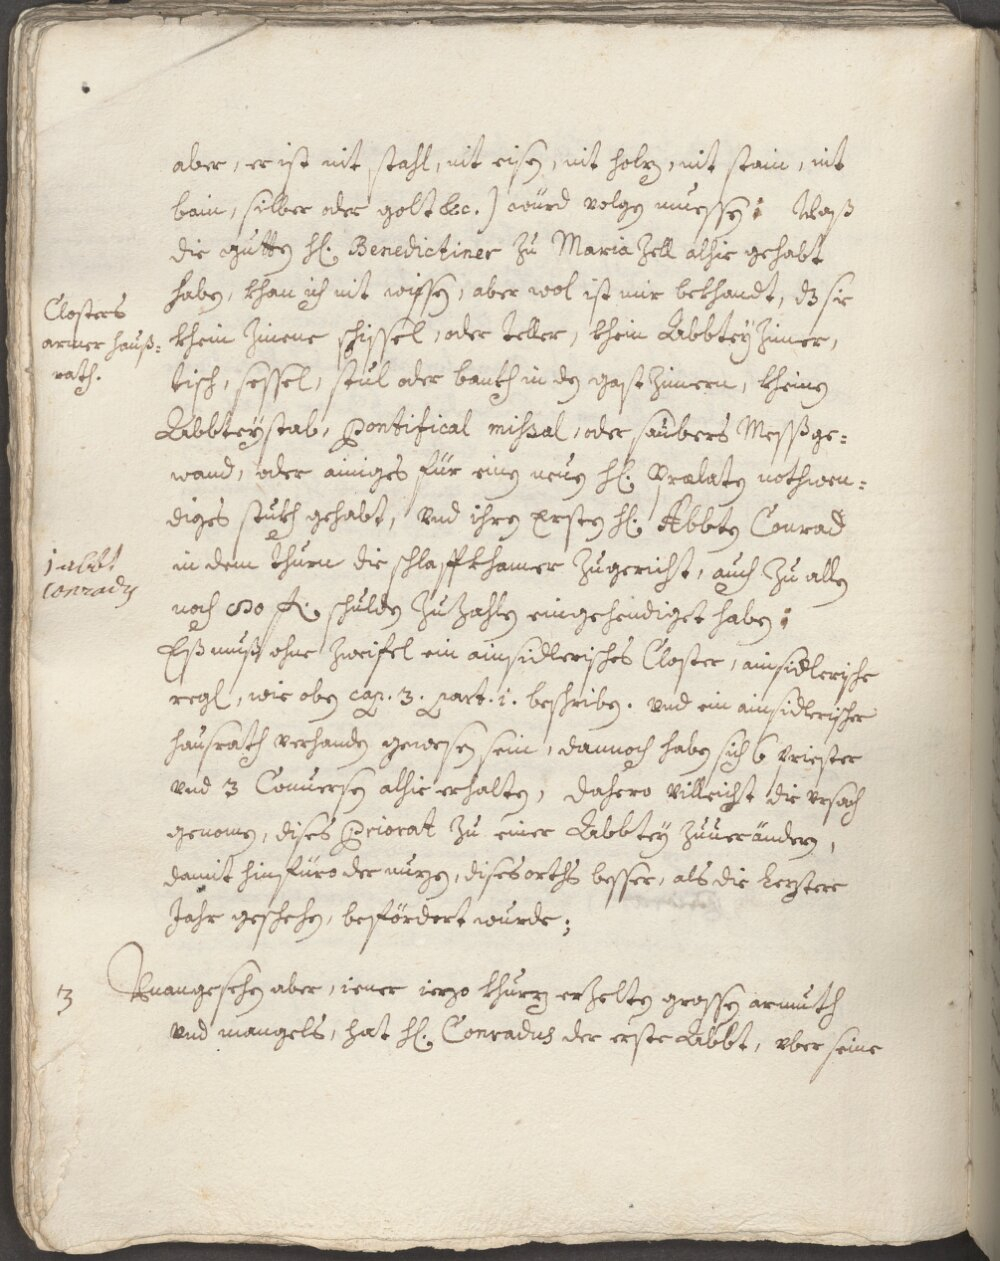 aber, er ist nit stahl, nit eisen, nit holz, nit stain, nit
bain, silber oder golt &c.) würd volgen muessen: Waß
die gutten hl. Benedictiner zu Maria Zell alhie gehabt
haben, khan ich nit wissen, aber wol ist mir bekhandt, dz sie
Closters
armer hauß=
rath.
khein zinene schissel, oder teller, khein Abbtey zimer,
tisch, sessel, stul oder banckh in den gast zimern, kheinen
Abbteystab, Pontifical missal, oder saubers Messge=
wand, oder ainiges für einen neuen hl. Prælaten nothwen=
diges stukh gehabt, vnd ihren Ersten hl. Abbten Conrad
1 abbt
Conraden
in dem thurn die schlaffkhamer zugericht, auch zu allen
noch fl. schulden zu zahlen eingehendiget haben:
Eß muß ohne zweifel ein ainsidlerisches Closter, ainsidlerische
regl, wie oben cap. 3. part. 1. beschriben. vnd ein ainsidlerischer
hausrath verhanden gewesen sein, dannoch haben sich 6 Priester
vnd 3 Conuersen alhie erhalten, dahero villeicht die vrsach
genomen, dises Priorat zu einer Abbtey zuuerändern,
damit hinfüro der nuzen, dises orths besser, als die leztere
Jahr geschehen, befördert wurde;
3 Vnangesehen aber, iener iezo khurz erzelten grossen armuth
vnd mangels, hat hl. Conradus der erste Abbt, vber seine